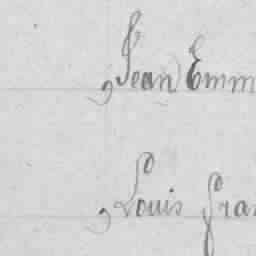 , Jean Emm
, Louis Fran